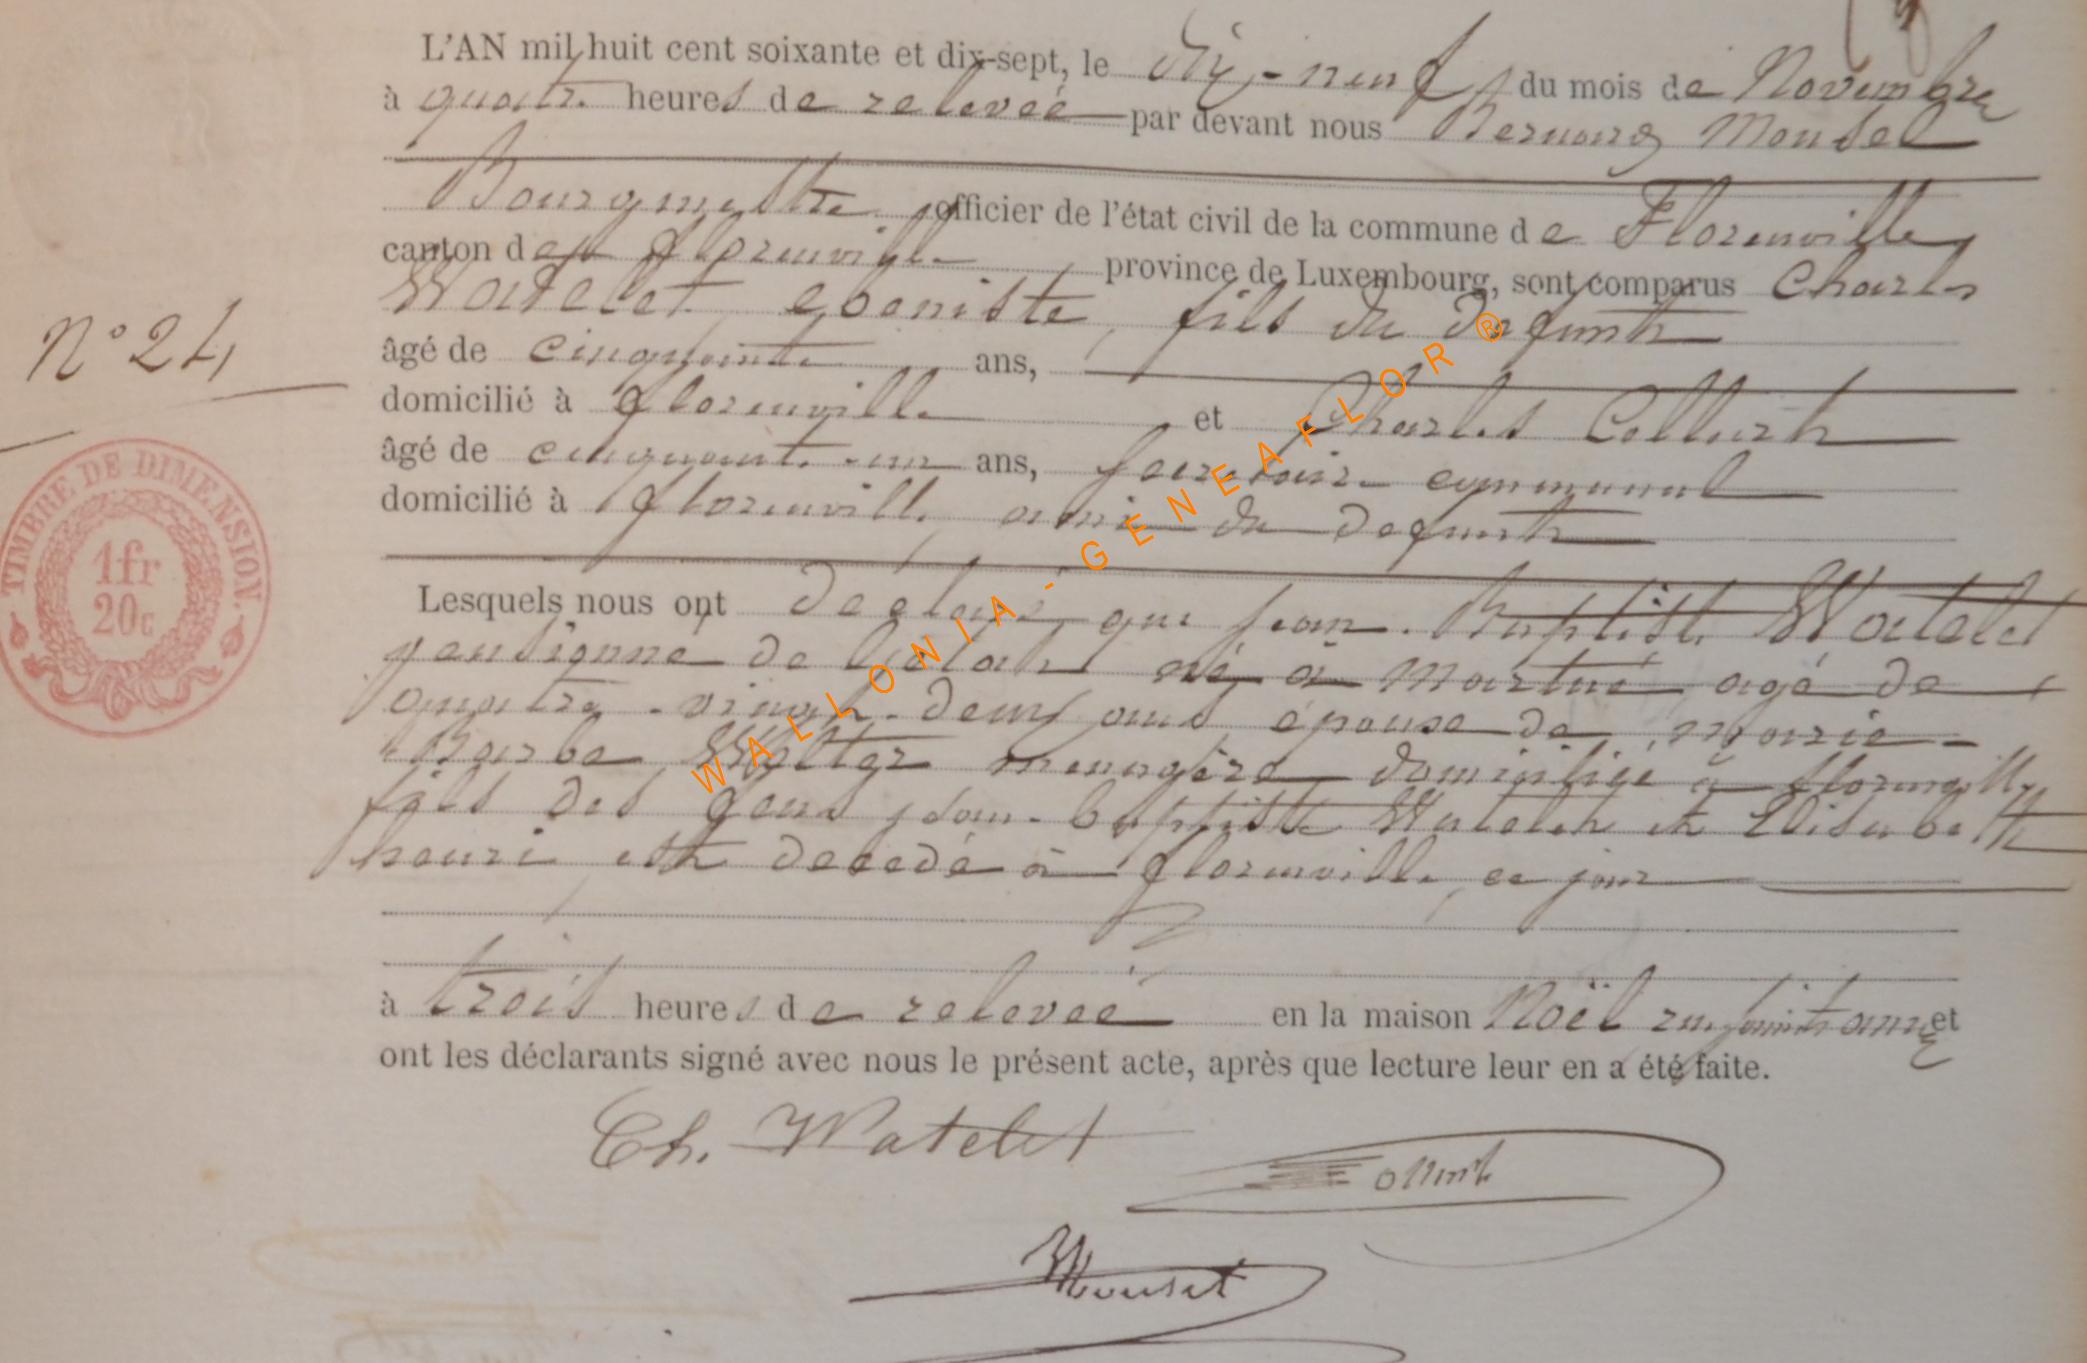 L'AN mil huit cent soixante et dix-sept, le dix-neuf du mois de Novembre
à quatre heures de relevée par devant nous Bernard Mousel
Bourgmestre officier de l'état civil de la commune de Florenville
canton de Florenville province de Luxembourg, sont comparus Charles
Watelet, ebeniste, fils du defunt
âgé de cinquante ans,
N° 24
domicilié à florenville et Charles Collinet
âgé de cinquante-un ans, secretaire communal
domicilié à florenville, ami du defunt
TIMBRE DE DIMENSION.
1fr
20c
Lesquels nous ont déclaré que jean-Baptiste Watelet
pensionné de l'état né à Martué agé de
quatre-vingt-deux ans, époux de Marie-
Barbe Walter menagère domiciliée à florenville
fils des feux jean-baptiste Watelet et Elisabeth
henri est decedé à florenville, ce jour
à trois heures de relevée en la maison Noël rue saint anne et
ont les déclarants signé avec nous le présent acte, après que lecture leur en a été faite.
Ch. Watelet
Collinet
Mousel
WALLONIA - GENEAFLOR ®